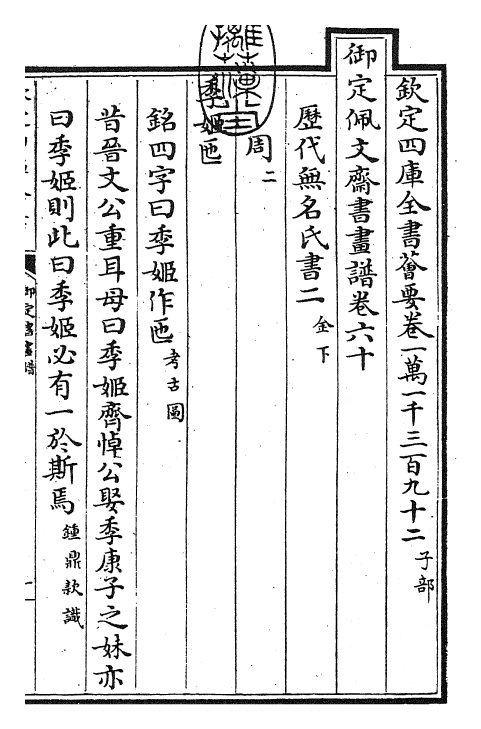 欽定四庫全書薈要卷一萬一千三百九十二 子部
御定佩文齋書畫譜卷六十
歷代無名氏書二 金下
周二
季姬匜
銘四字曰季姬作匜 考古圖
昔晉文公重耳母曰季姬齊悼公娶季康子之妹亦
曰季姬則此曰季姬必有一於斯焉 鍾鼎款識